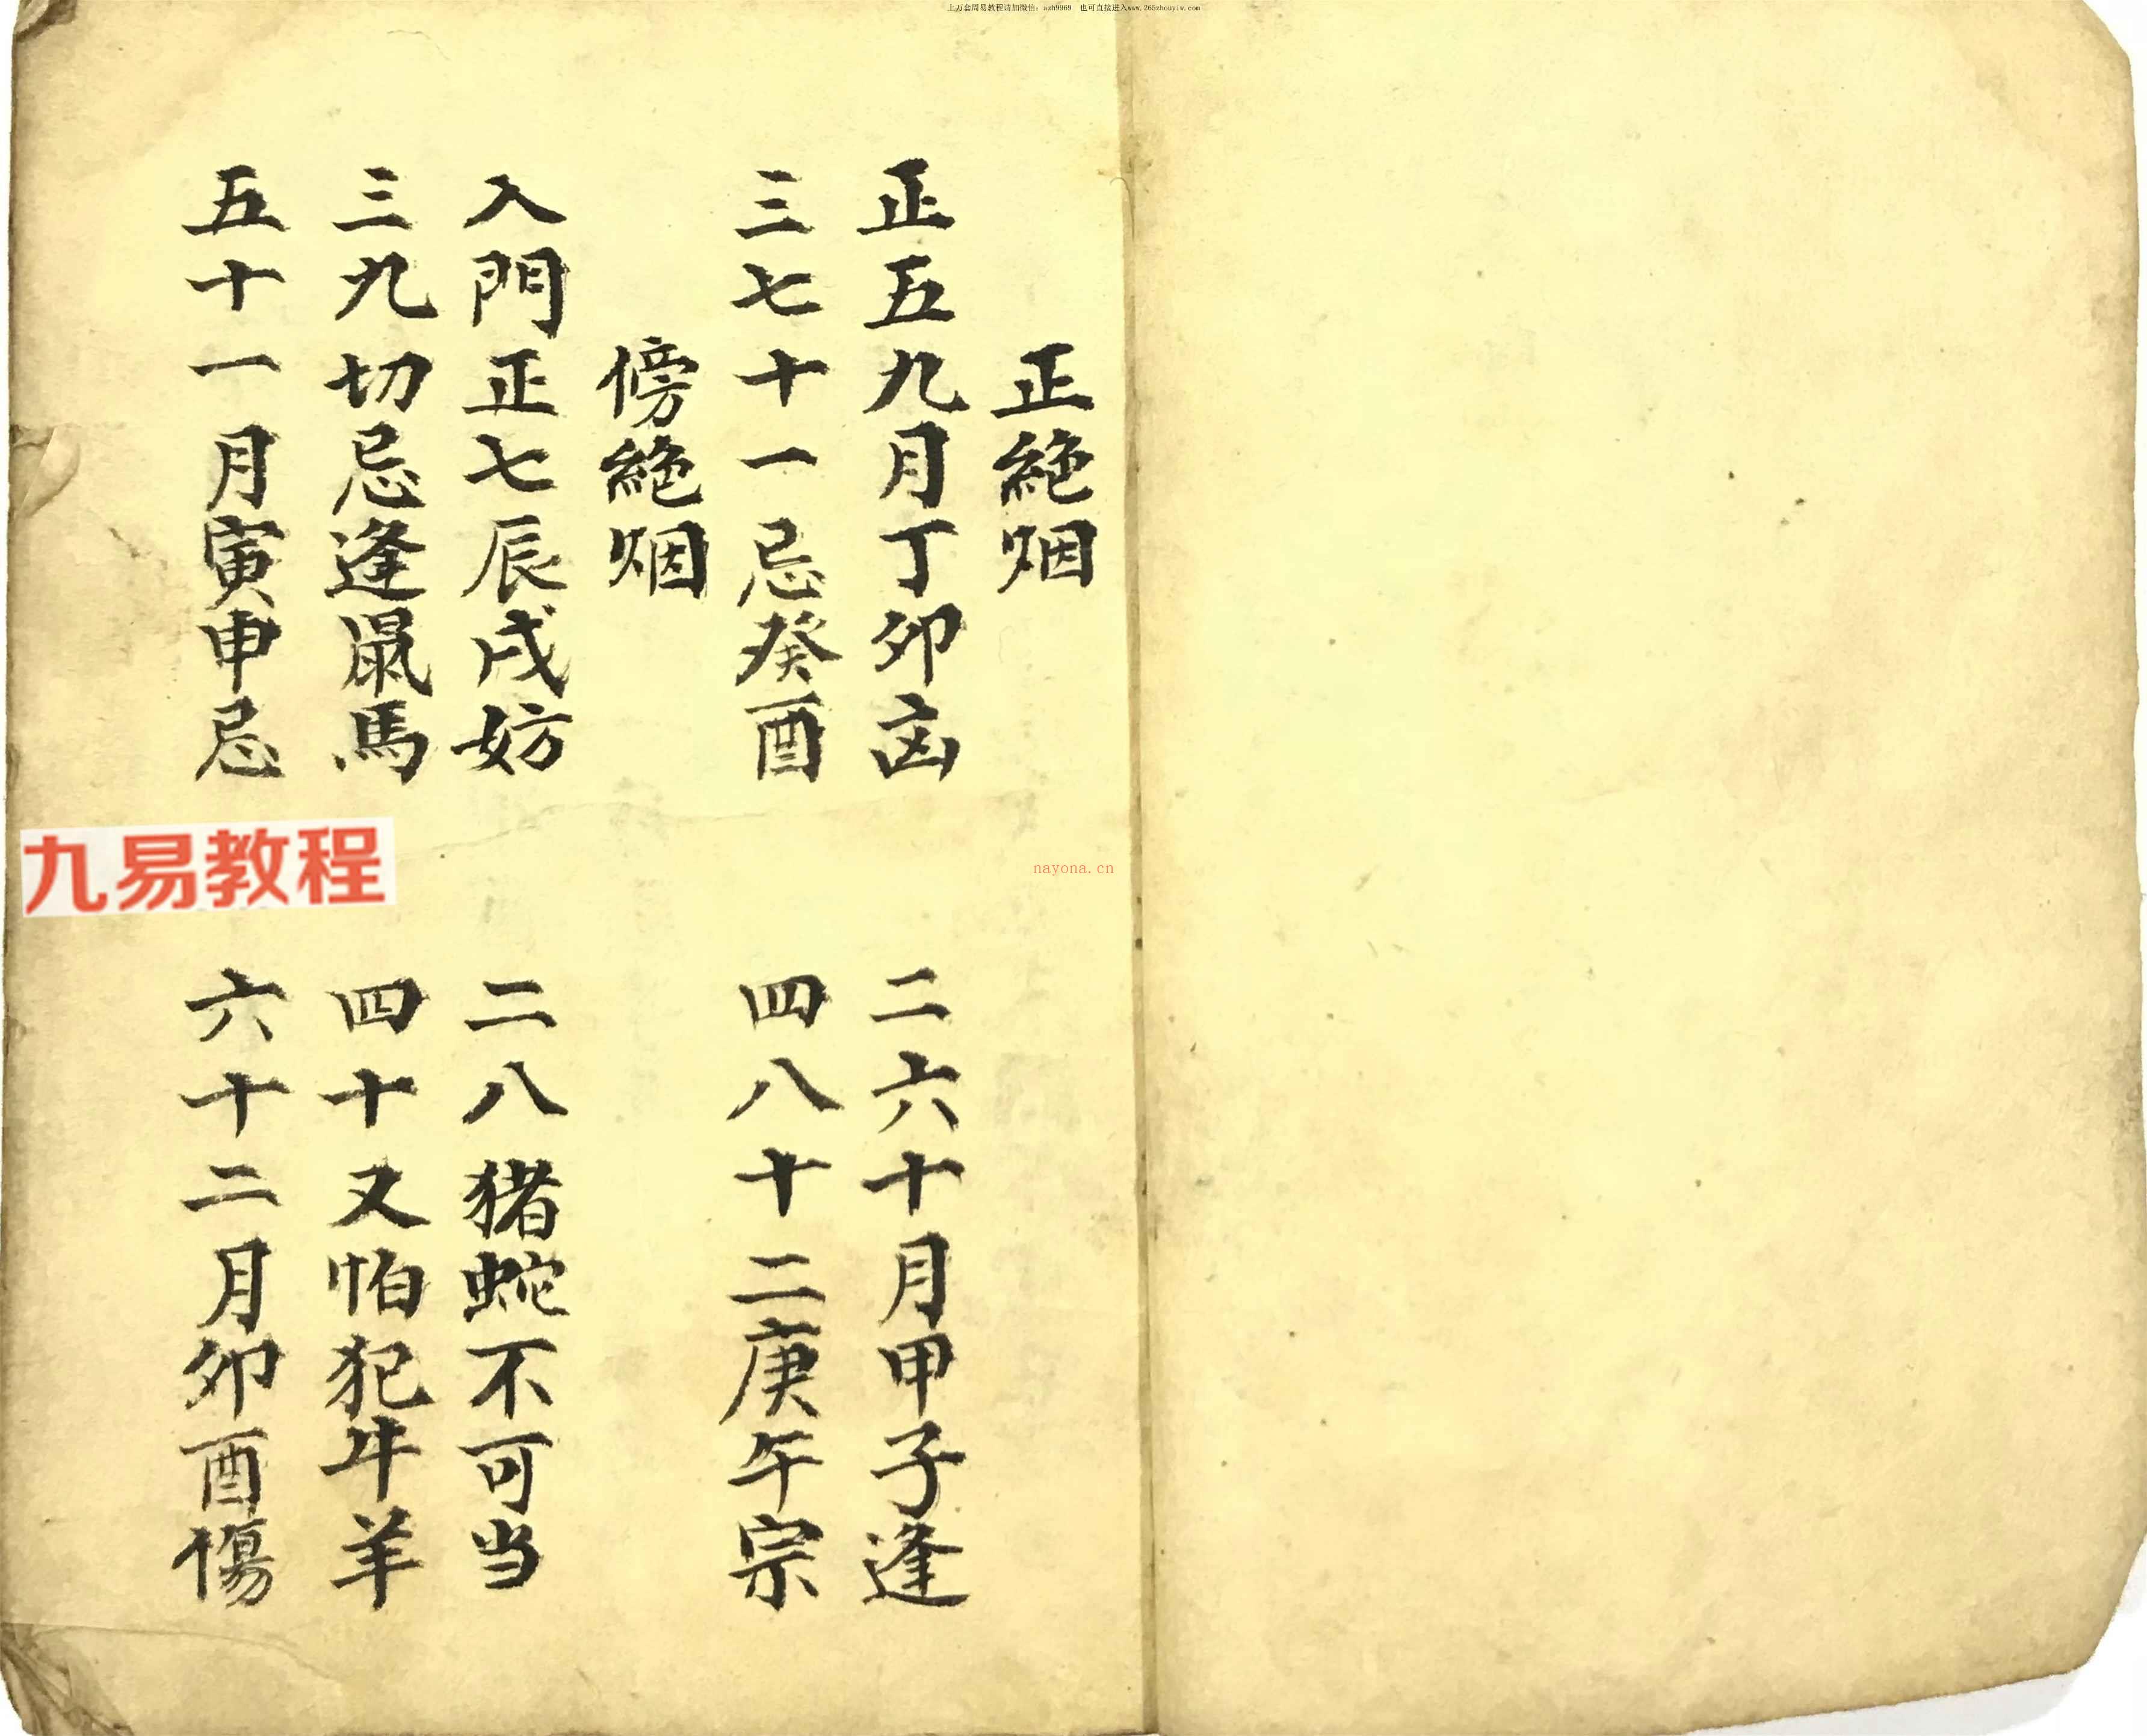 上万套周易教程请加微信：azh9969　也可直接进入www.265zhouyiw.com
正絶烟
正五九月丁卯凶　二六十月甲子逢
三七十一忌癸酉　四八十二庚午宗
傍絶烟
入門正七辰戌妨　二八猪蛇不可当
三九切忌逢鼠馬　四十又怕犯牛羊
五十一月寅申忌　六十二月卯酉傷
九易教程
nayona.cn